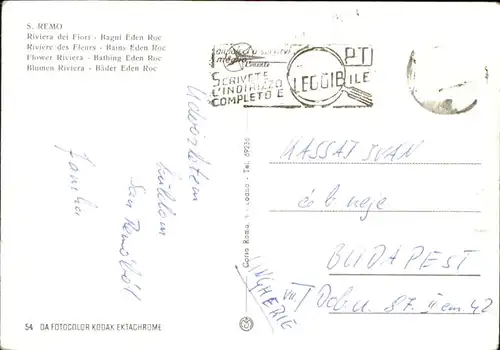 S. REMO
Riviera dei Fiori - Bagni Eden Roc
Riviere des Fleurs - Bains Eden Roc
Flower Riviera - Bathing Eden Roc
Blumen Riviera - Bäder Eden Roc
aiutateci a servirvi
meglio
SCRIVETE
L'INDIRIZZO
COMPLETO E LEGGIBILE
PT
Üdvözletem
küldöm
San Remóból
Jancsi
Tel. 69236
KASSAI IVAN
és b. neje
BUDAPEST
VII. Dob u. 87. II em. 42
UNGHERIE
54 DA FOTOCOLOR KODAK EKTACHROME